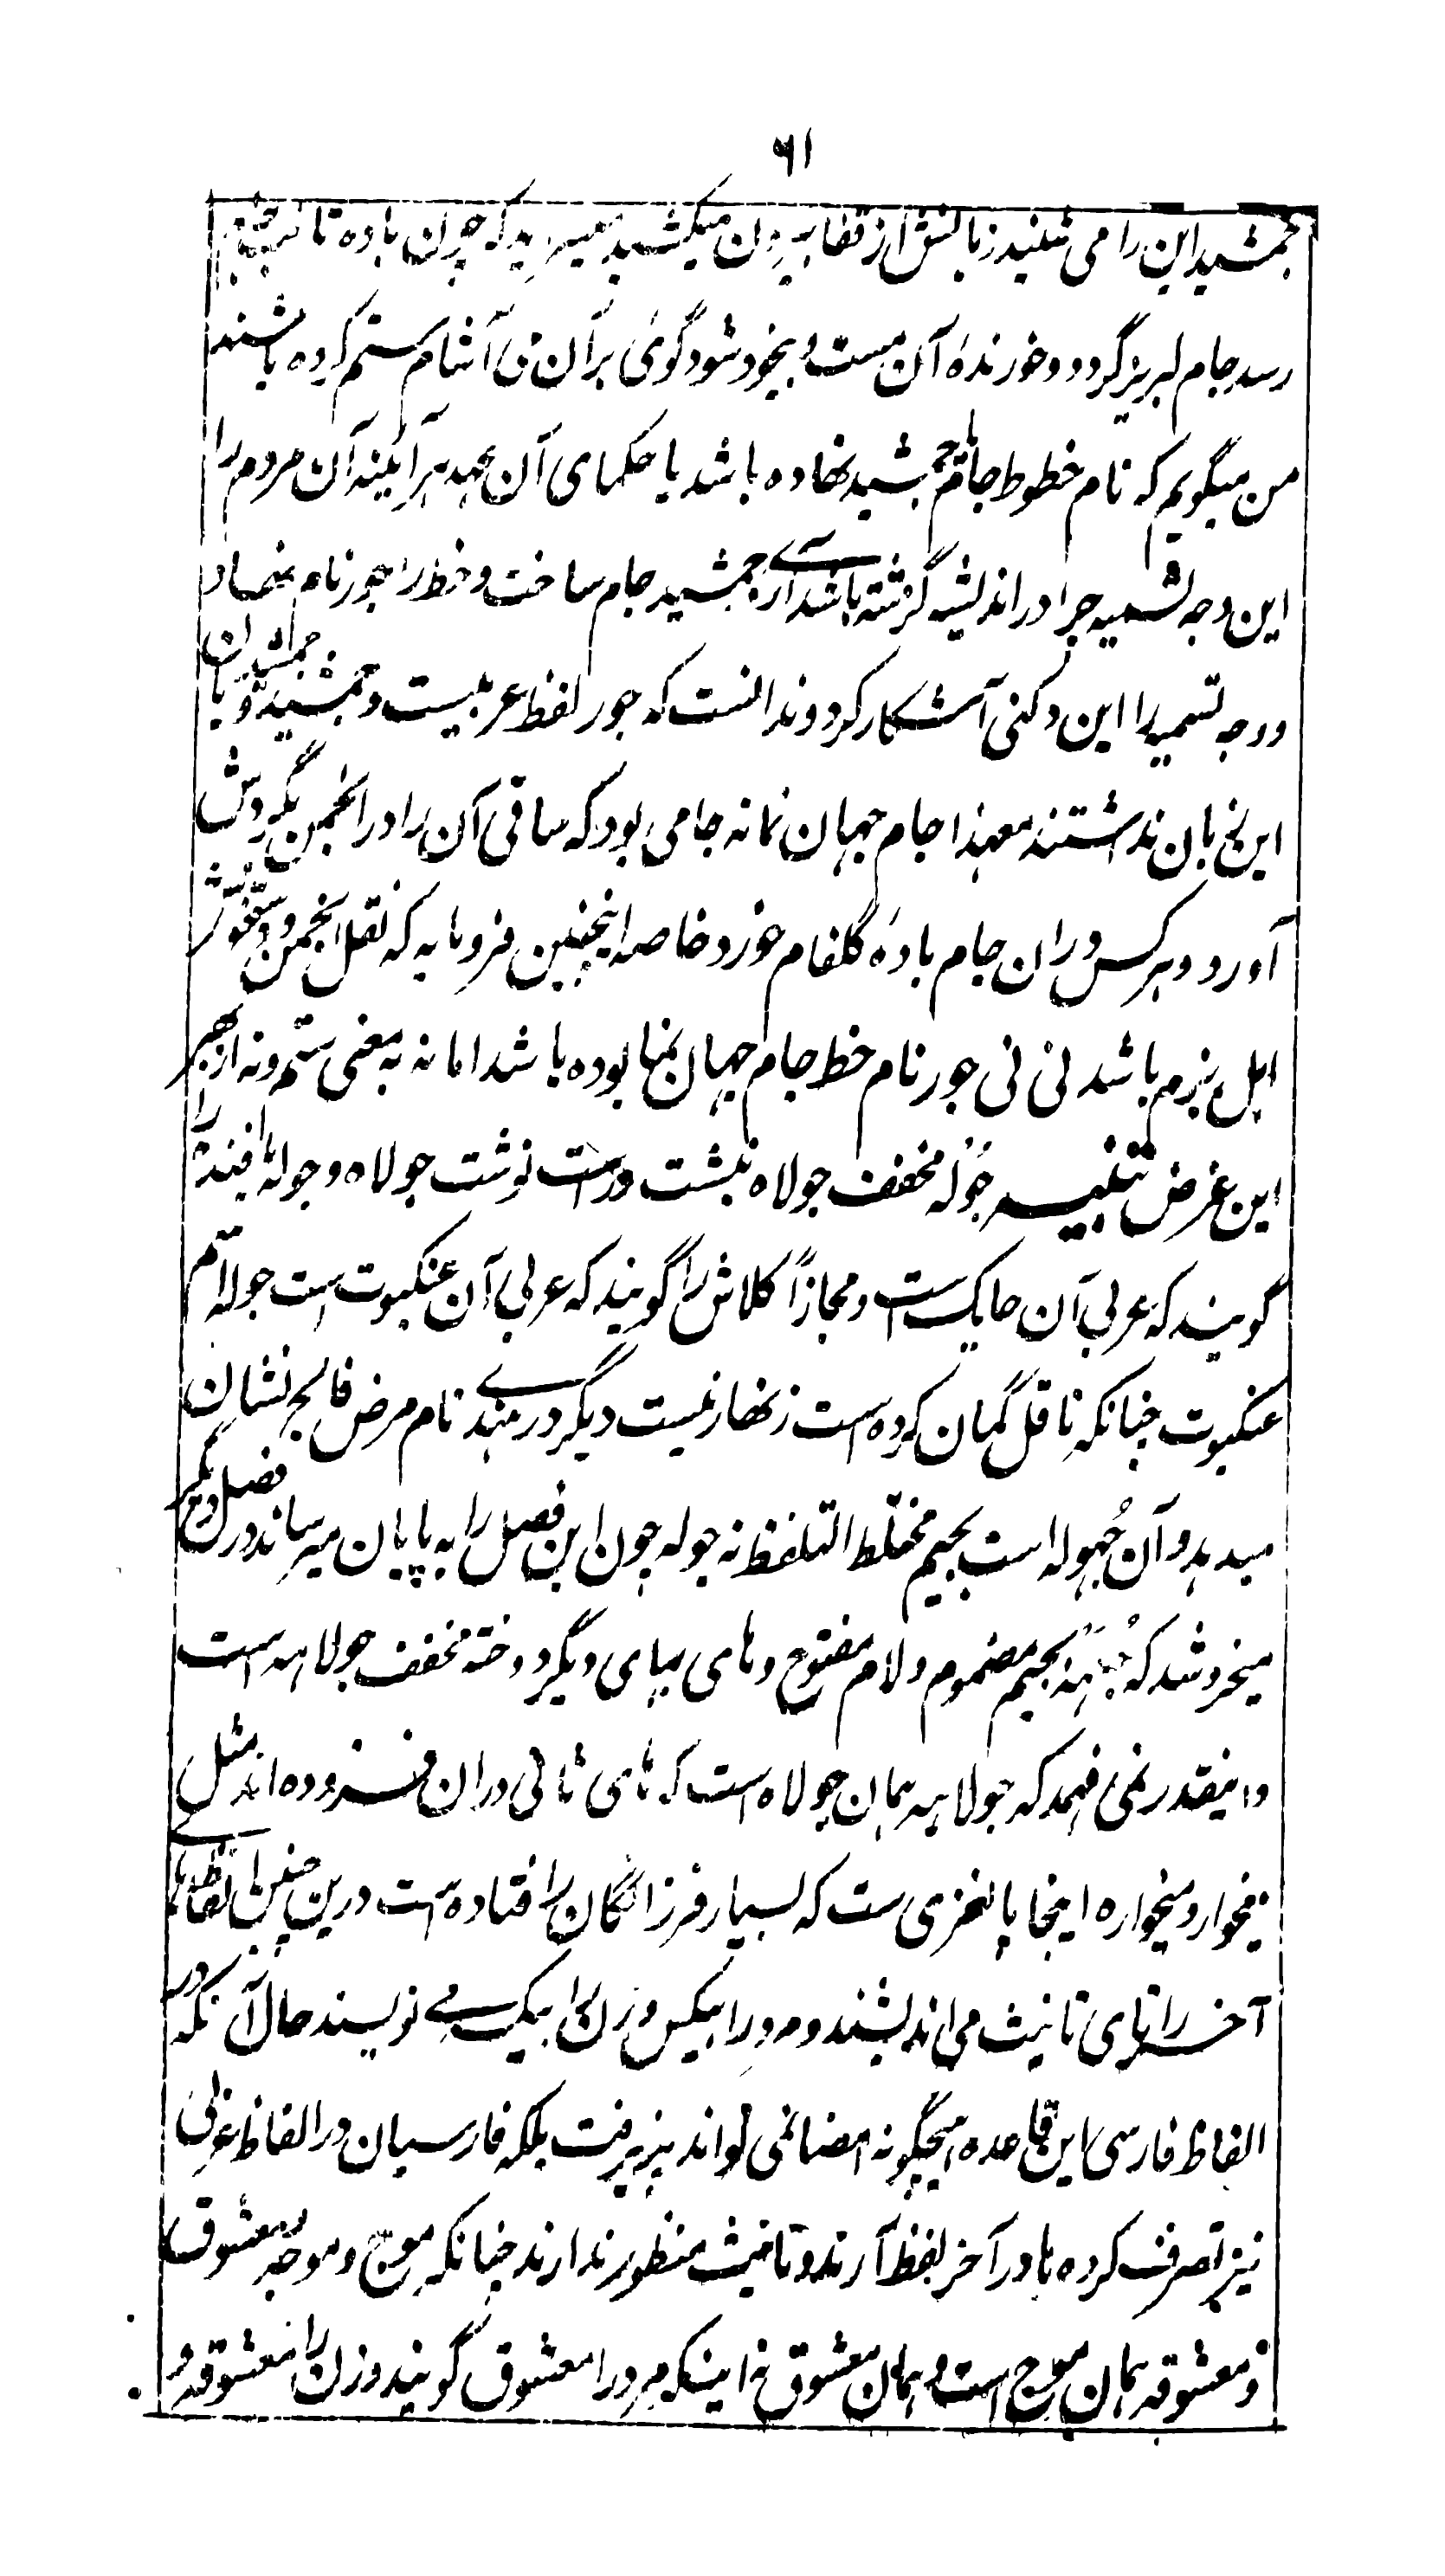 ۶۱
جمشید این را می شنید زبانش از قفا بیرون میکشید میسراید که چون باده تا
رسد جام لبریز گردد و خورندهٔ آن مست و بیخود شود گوئی بر آن می آشام ستم کرده باشند
من میگویم که نام خطوط جام یا جمشید نهاده باشد یا حکمای آن عهد هر آئینه آن مردم را
این وجه تسمیه چرا در اندیشه گذشته باشد آرے جمشید جام ساخت و خط را جور نام نهاد
و وجه تسمیه را این دکنی آشکار کرد و ندانست که جور لفظ عربیست و جمشید و یا جمشیدیان
این زبان نداشتند معهذا جام جهان نما نه جامی بود که ساقی آن را در انجمن بگردش
آورد و هر کس دران جام بادهٔ گلفام خورد خاصه اینچنین فرومایه که نقل انجمن و
اهل بزم باشد نی نی جور نام خط جام جهان نما بوده باشد اما نه به معنی ستم و نه از بهر
این غرض تنبیه جُوله مخفف جولاه نبشت و راست نوشت جولاه و جولهه بافنده را
گویند که عربی آن حایک است و مجازاً کلاش را گویند که عربی آن عنکبوت است جوله اسم
عنکبوت چنانکه ناقل گمان کرده است زنهار نیست دیگر در هندے نام مرض فالج نشان
میدهد و آن جُهوله است بجیم مختلط التلفظ نه جوله چون این فصل را به پایان میرساند در فصل دیگر
میخروشد که جُلَهه بجیم مضموم و لام مفتوح و های بهای دیگر دوخته مخفف جولاهه است
و اینقدر نمی فهمد که جولاهه همان جولاه است که های ثانی دران افزوده اند مثل
میخوار و میخواره اینجا پا لغزی ست که بسیار فرزانگان را افتاده است درین چنین الفاظ هاے
آخر را تای تانیث می اندیشند و مرد را بیکس و زن را بیکسه می نویسند حال آنکه در
الفاظ فارسی این قاعده هیچگونه امضا نمی تواند پذیرفت بلکه فارسیان در الفاظ عربی
نیز تصرف کرده ها در آخر لفظ آرند و تانیث منظور ندارند چنانکه موج و موجه و معشوق
و معشوقه همان موج است و همان معشوق نه اینکه مرد را معشوق گویند و زن را معشوقه و